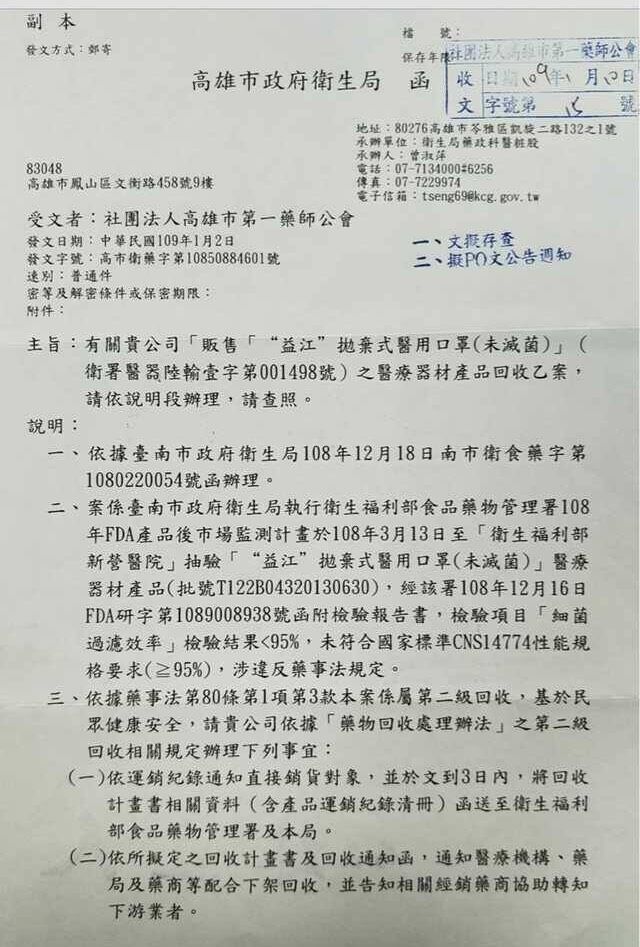 副本
發文方式：郵寄
檔　　號：
保存年限
社團法人高雄市第一藥師公會
收 日期109年1月10日
文 字號第 15 號
高雄市政府衛生局　函
地址：80276高雄市苓雅區凱旋二路132之1號
承辦單位：衛生局藥政科醫粧股
承辦人：曾淑萍
電話：07-7134000#6256
傳真：07-7229974
電子信箱：tseng69@kcg.gov.tw
83048
高雄市鳳山區文衡路458號9樓
受文者：社團法人高雄市第一藥師公會
發文日期：中華民國109年1月2日
發文字號：高市衛藥字第10850884601號
速別：普通件
密等及解密條件或保密期限：
附件：
一、文擬存查
二、擬PO文公告週知
主旨：有關貴公司「販售「“益江”拋棄式醫用口罩(未滅菌)」（
衛署醫器陸輸壹字第001498號）之醫療器材產品回收乙案，
請依說明段辦理，請查照。
說明：
一、依據臺南市政府衛生局108年12月18日南市衛食藥字第
1080220054號函辦理。
二、案係臺南市政府衛生局執行衛生福利部食品藥物管理署108
年FDA產品後市場監測計畫於108年3月13日至「衛生福利部
新營醫院」抽驗「“益江”拋棄式醫用口罩(未滅菌)」醫療
器材產品(批號T122B04320130630)，經該署108年12月16日
FDA研字第1089008938號函附檢驗報告書，檢驗項目「細菌
過濾效率」檢驗結果<95%，未符合國家標準CNS14774性能規
格要求(≧95%)，涉違反藥事法規定。
三、依據藥事法第80條第1項第3款本案係屬第二級回收，基於民
眾健康安全，請貴公司依據「藥物回收處理辦法」之第二級
回收相關規定辦理下列事宜：
(一)依運銷紀錄通知直接銷貨對象，並於文到3日內，將回收
計畫書相關資料（含產品運銷紀錄清冊）函送至衛生福利
部食品藥物管理署及本局。
(二)依所擬定之回收計畫書及回收通知函，通知醫療機構、藥
局及藥商等配合下架回收，並告知相關經銷藥商協助轉知
下游業者。